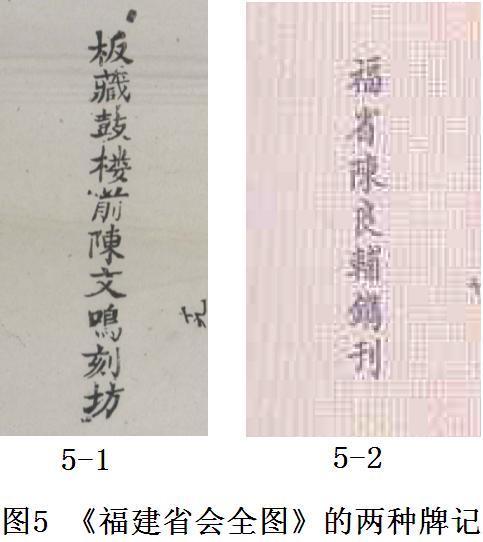 板藏鼓楼前陳文鳴刻坊
福省陳良輔鐫刊
5-1
5-2
图5 《福建省会全图》的两种牌记